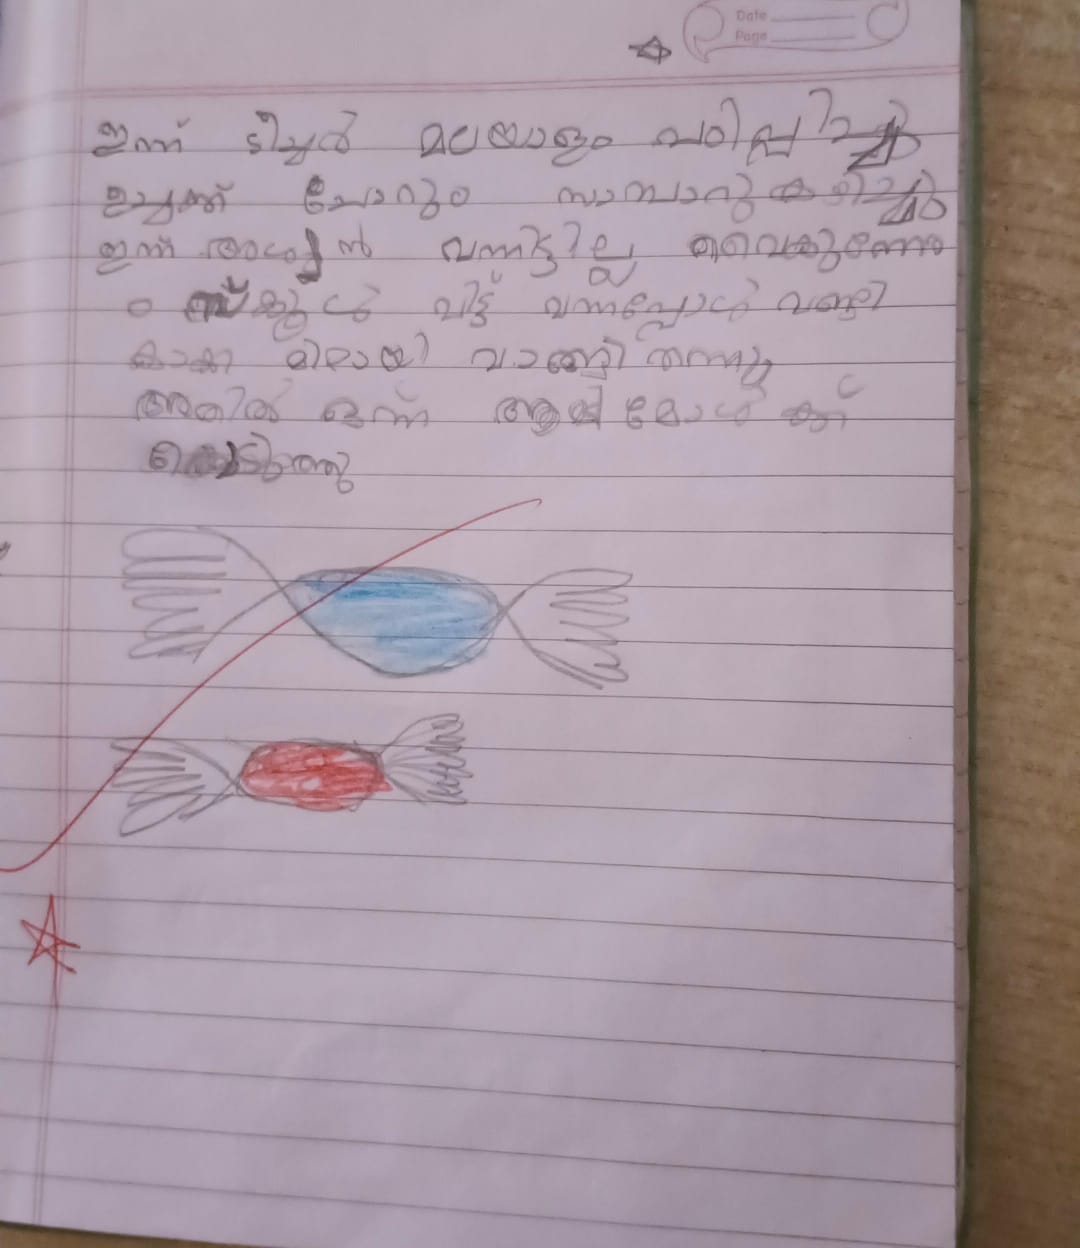 Date
Page
ഇന്ന് ടീച്ചർ മലയാളം പഠിപ്പിച്ചു
ഉച്ചക്ക് ചോറും സാമ്പാറു കഴിച്ചു
ഇന്ന് വന്നിട്ടില്ല വൈകുന്നേര
ം സ്കൂൾ വിട്ട് വന്നപ്പോൾ വണ്ടി
കാക്ക മിഠായി വാങ്ങി തന്നു
അതിൽ ഒന്ന് മോൾ ക്ക്
കൊടുത്തു